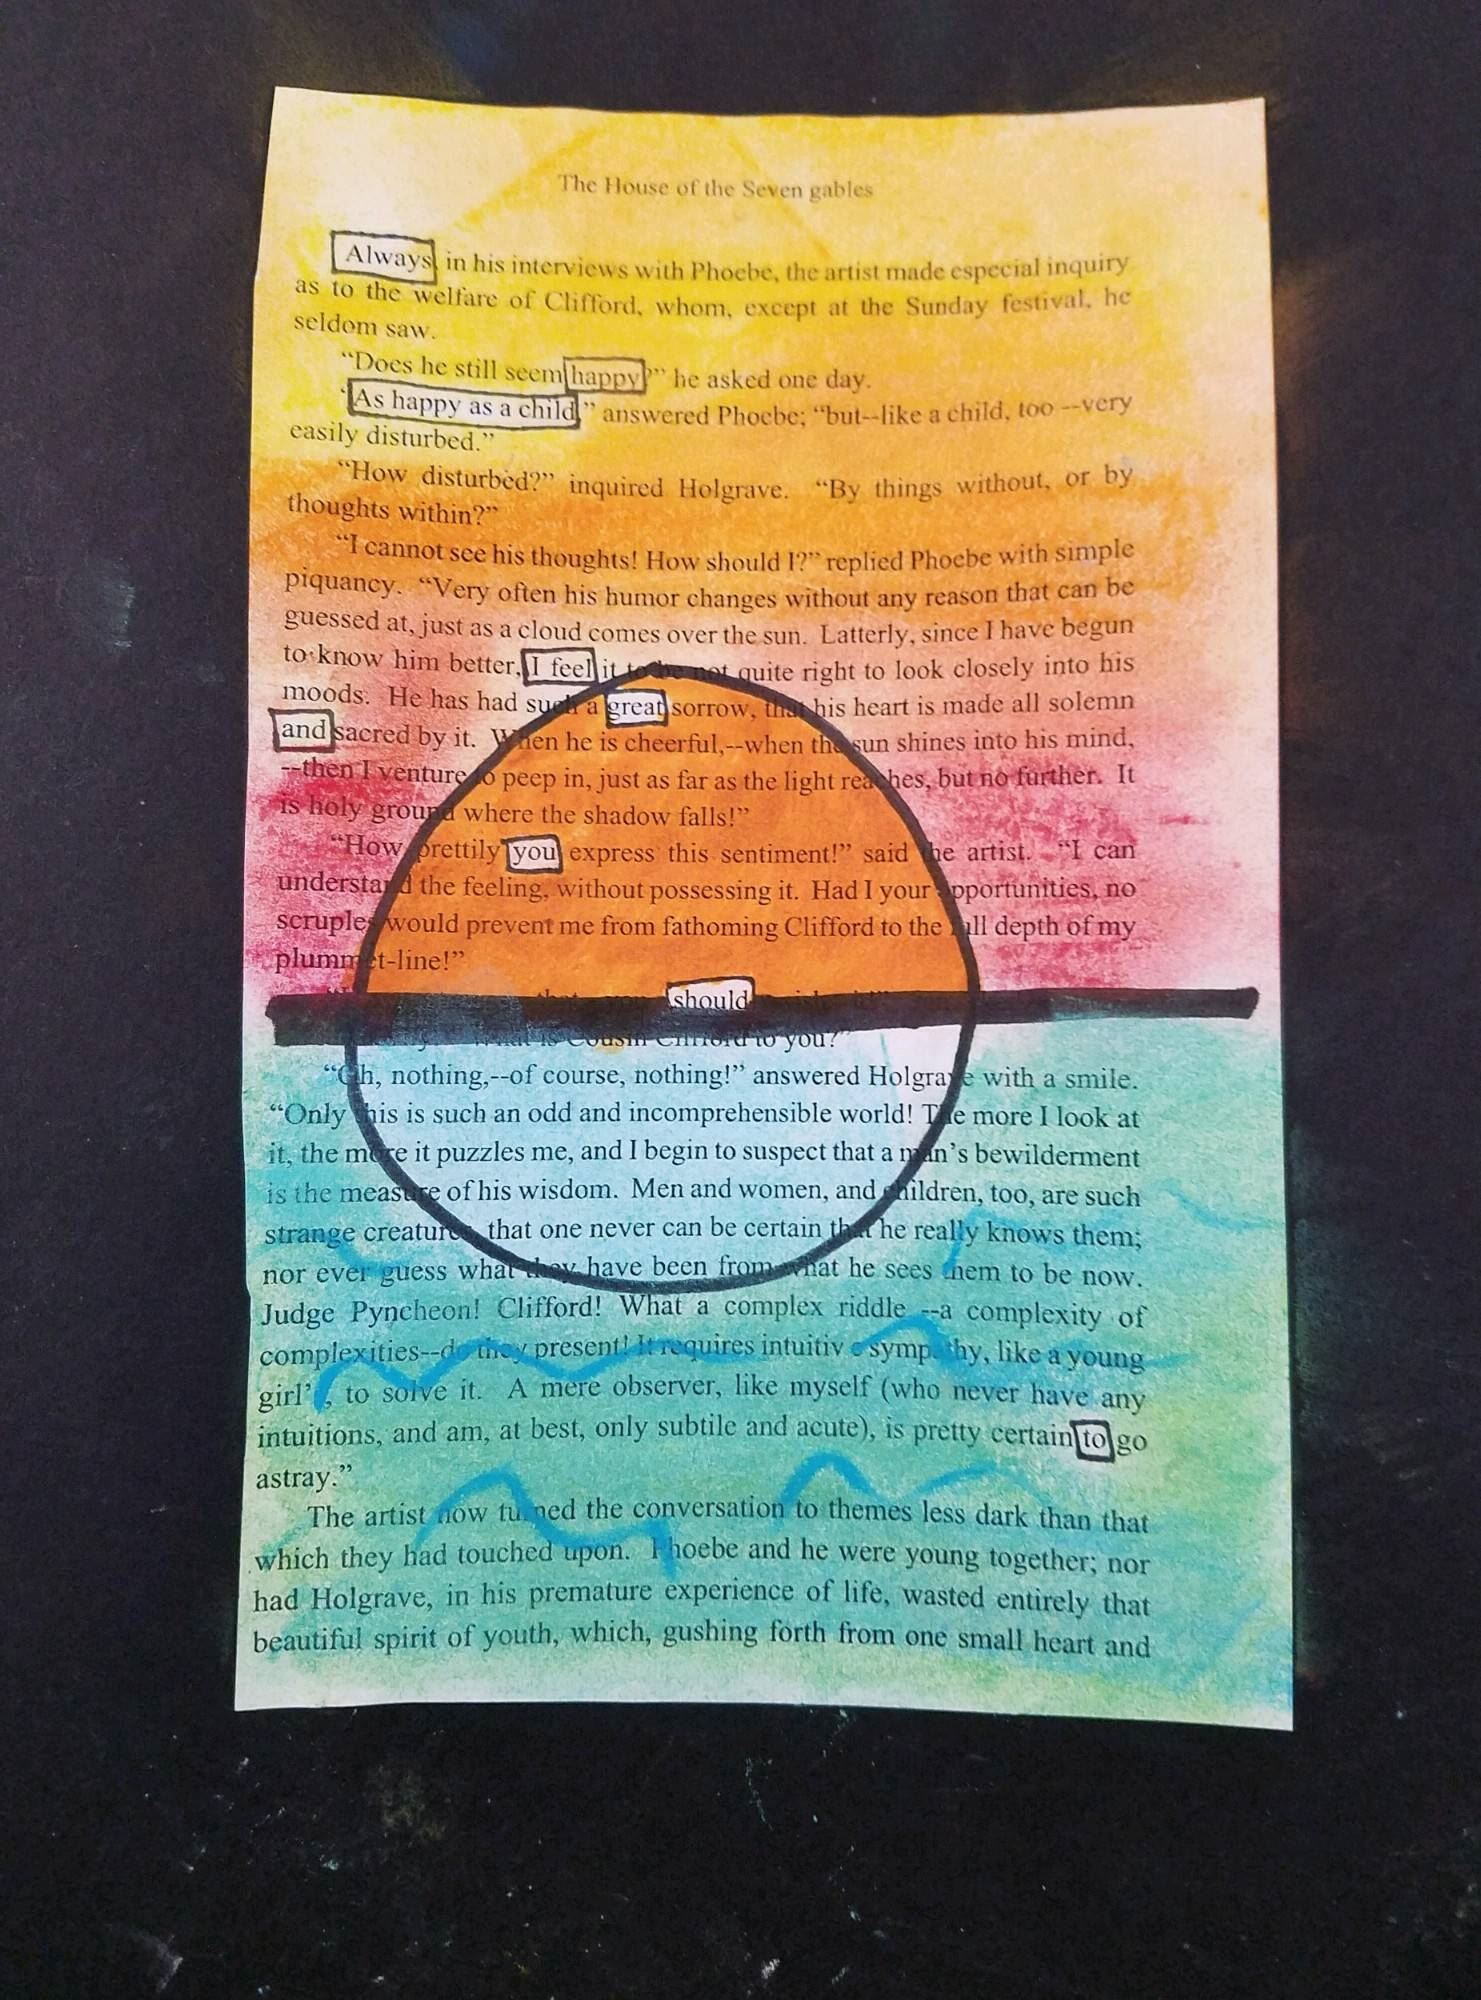 The House of the Seven gables
Always, in his interviews with Phoebe, the artist made especial inquiry
as to the welfare of Clifford, whom, except at the Sunday festival, he
seldom saw.
"Does he still seem happy?" he asked one day.
"As happy as a child," answered Phoebe; "but--like a child, too --very
easily disturbed."
"How disturbed?" inquired Holgrave. "By things without, or by
thoughts within?"
"I cannot see his thoughts! How should I?" replied Phoebe with simple
piquancy. "Very often his humor changes without any reason that can be
guessed at, just as a cloud comes over the sun. Latterly, since I have begun
to know him better, I feel it to be not quite right to look closely into his
moods. He has had such a great sorrow, that his heart is made all solemn
and sacred by it. When he is cheerful,--when the sun shines into his mind,
--then I venture to peep in, just as far as the light reaches, but no further. It
is holy ground where the shadow falls!"
"How prettily you express this sentiment!" said the artist. "I can
understand the feeling, without possessing it. Had I your opportunities, no
scruples would prevent me from fathoming Clifford to the full depth of my
plummet-line!"
that you should
What is Cousin Clifford to you?"
"Oh, nothing,--of course, nothing!" answered Holgrave with a smile.
"Only this is such an odd and incomprehensible world! The more I look at
it, the more it puzzles me, and I begin to suspect that a man's bewilderment
is the measure of his wisdom. Men and women, and children, too, are such
strange creatures, that one never can be certain that he really knows them;
nor ever guess what they have been from what he sees them to be now.
Judge Pyncheon! Clifford! What a complex riddle --a complexity of
complexities--do they present! It requires intuitive sympathy, like a young
girl's, to solve it. A mere observer, like myself (who never have any
intuitions, and am, at best, only subtile and acute), is pretty certain to go
astray."
The artist now turned the conversation to themes less dark than that
which they had touched upon. Phoebe and he were young together; nor
had Holgrave, in his premature experience of life, wasted entirely that
beautiful spirit of youth, which, gushing forth from one small heart and